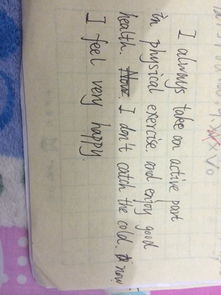 I always take an active part
in physical exercise and enjoy good
health. I don't catch the cold. now
I feel very happy